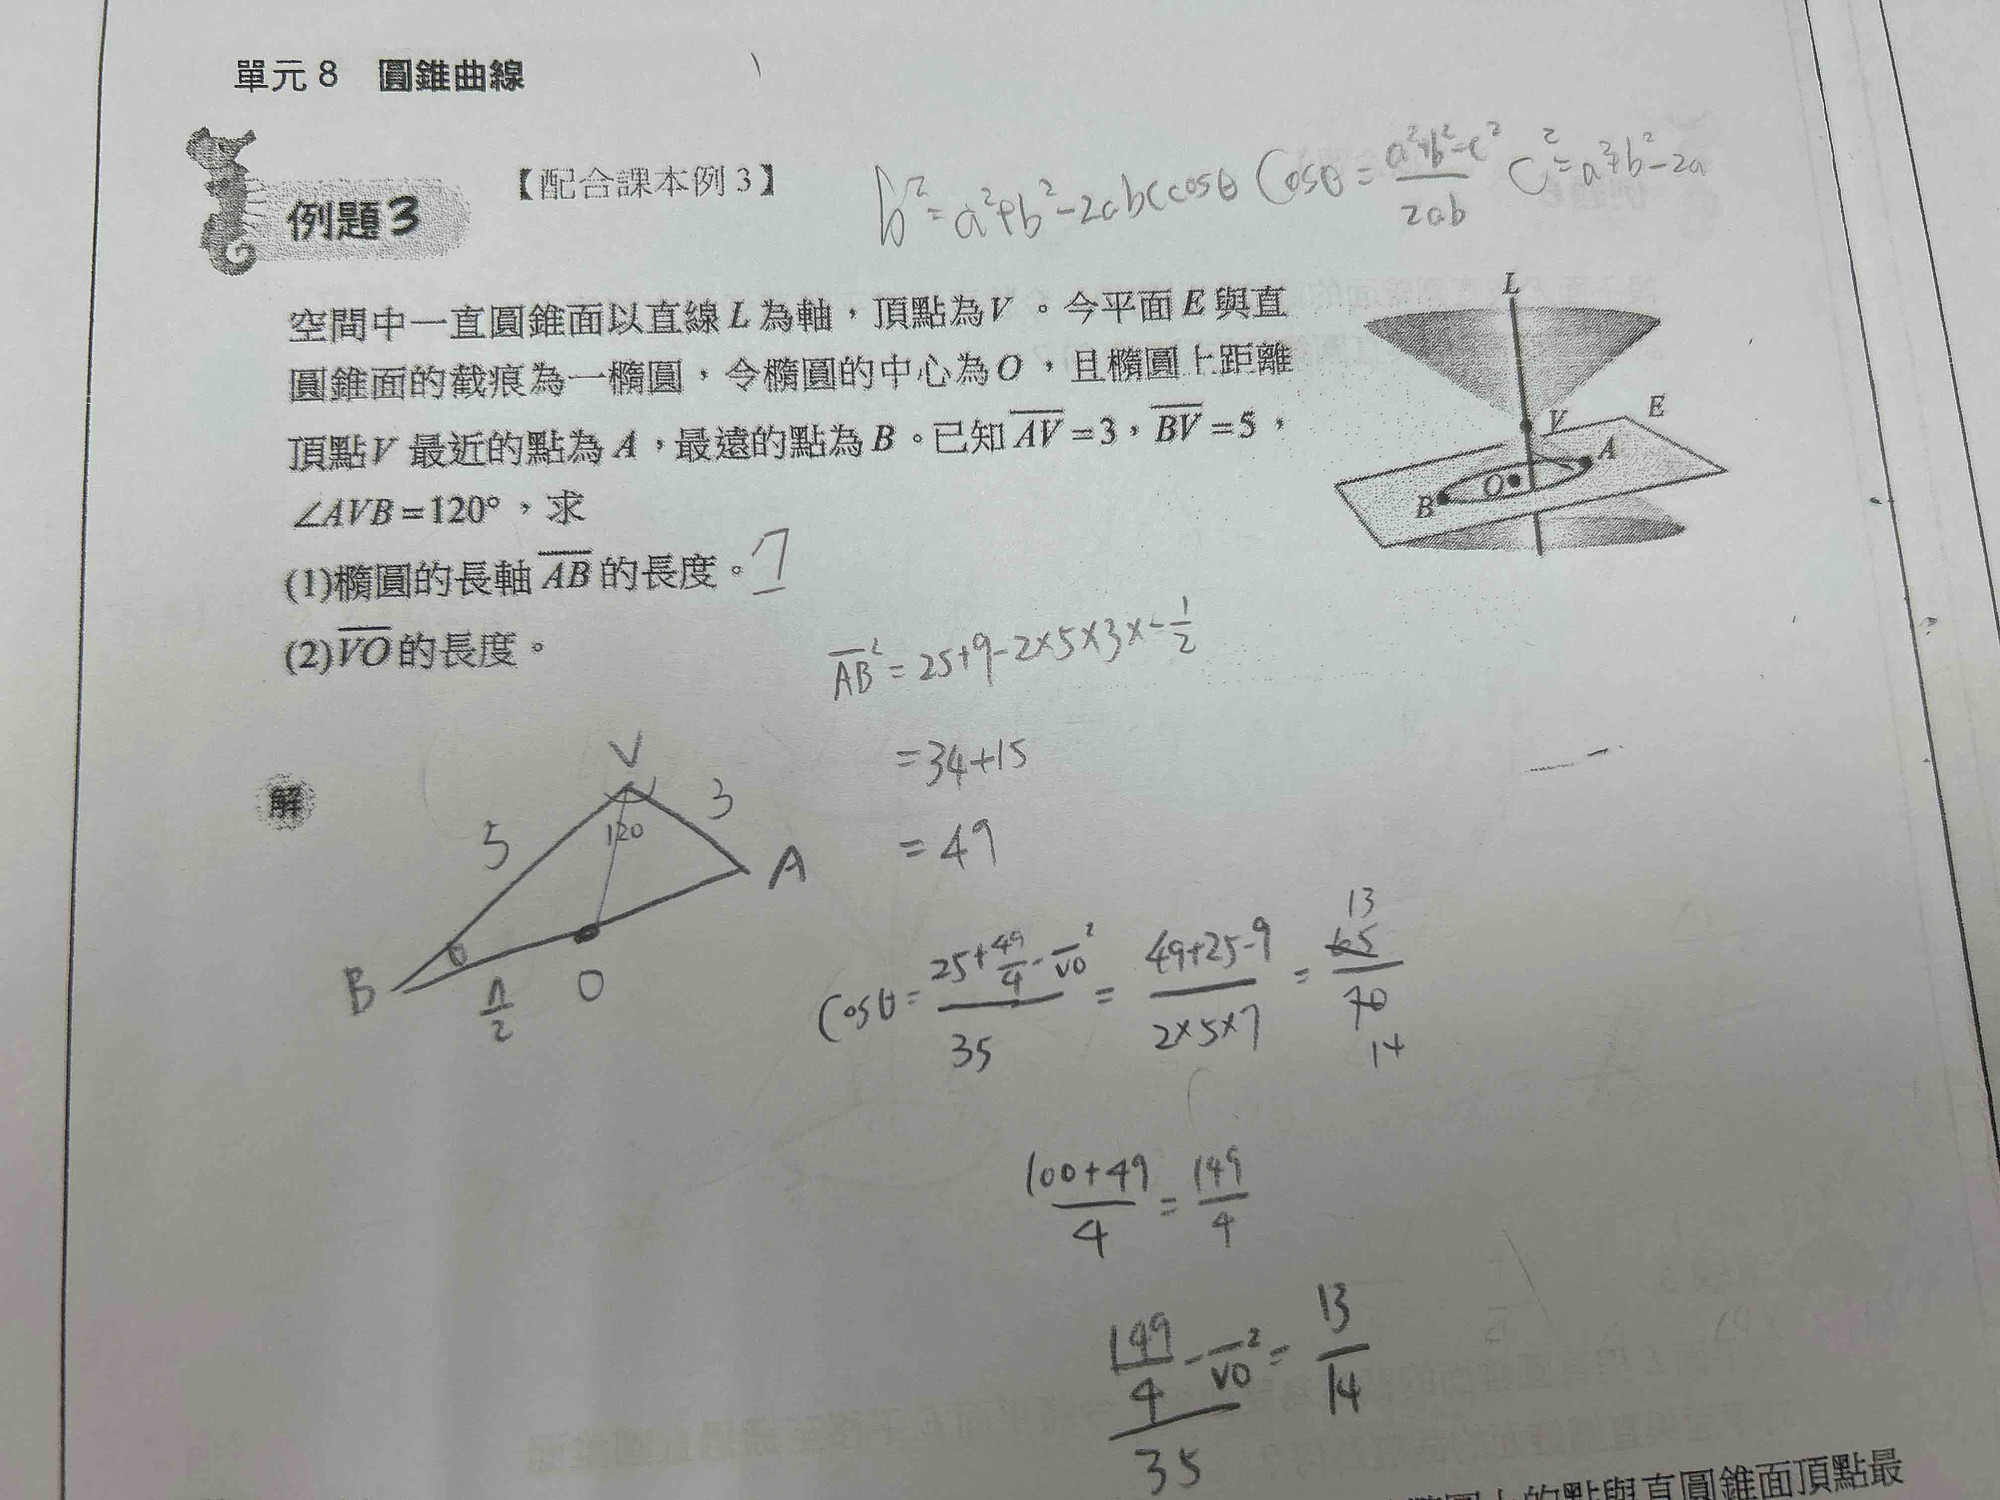 單元 8 圓錐曲線
例題3
【配合課本例 3】
b²=a²+b²-2abccosθ Cosθ=\frac{a²+b²-c²}{2ab} C²=a²+b²-2a
空間中一直圓錐面以直線 L 為軸，頂點為V 。今平面 E 與直
圓錐面的截痕為一橢圓，令橢圓的中心為O ，且橢圓上距離
頂點V 最近的點為 A，最遠的點為 B。已知 \overline{AV} =3，\overline{BV} =5，
∠AVB=120°，求
(1)橢圓的長軸 \overline{AB} 的長度。7
(2)\overline{VO} 的長度。
L
V
E
A
O
B
\overline{AB}²=25+9-2×5×3×-\frac{1}{2}
=34+15
=49
解
V
5
3
120
A
B
θ
\frac{7}{2}
O
Cosθ=\frac{25+\frac{49}{4}-\overline{VO}²}{35}=\frac{49+25-9}{2×5×7}=\frac{65}{70}
13
14
\frac{100+49}{4}=\frac{149}{4}
\frac{\frac{149}{4}-\overline{VO}²}{35}=\frac{13}{14}
的點與直圓錐面頂點最